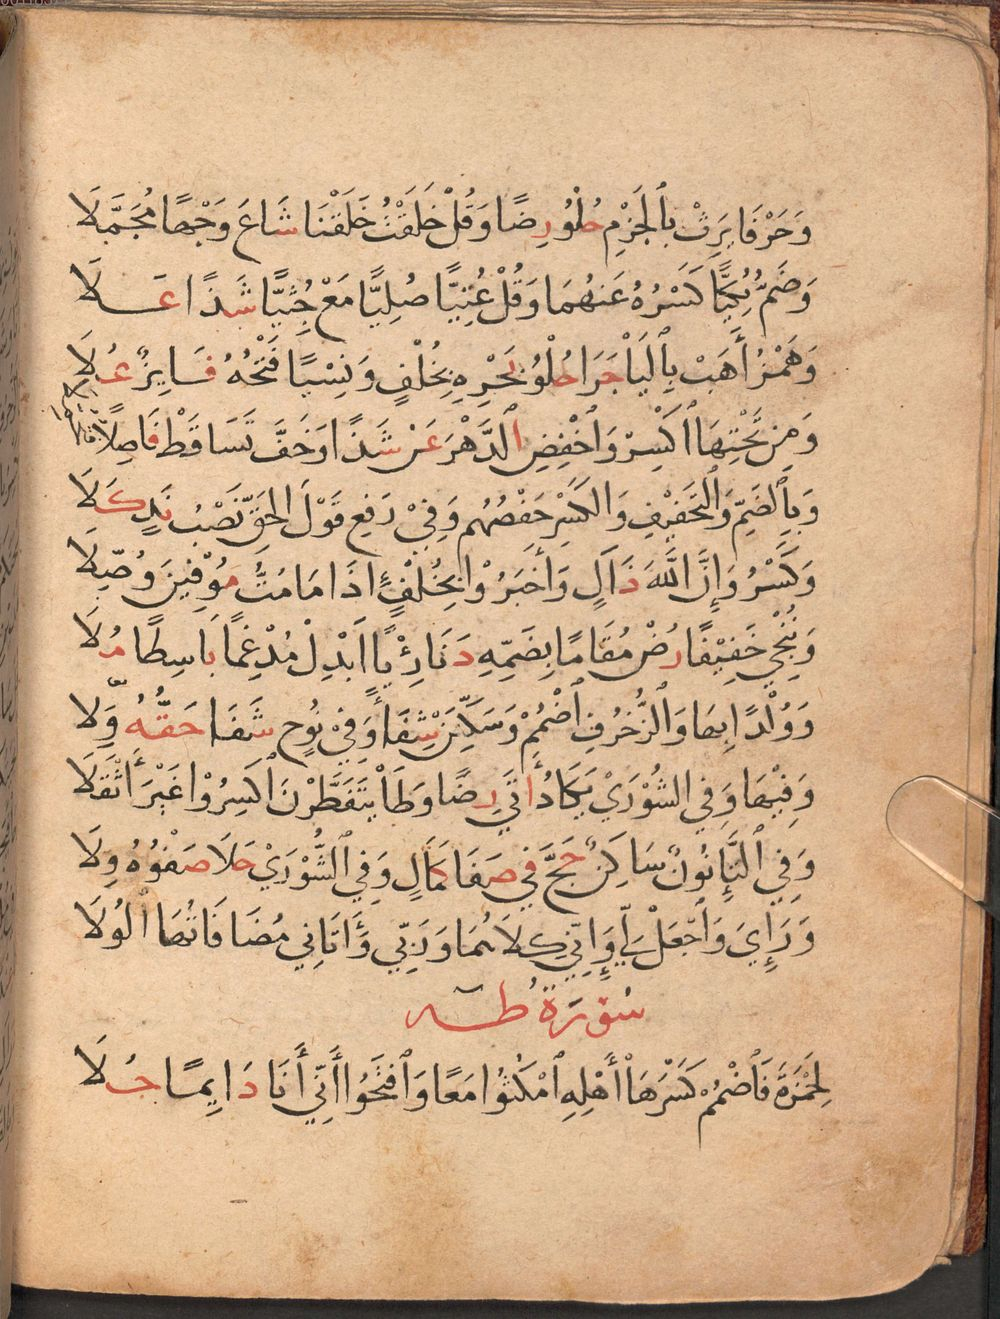 وَحَرْفَا يَرِثْ بِالْجَزْمِ حُلْوُ رِضًا وَقُلْ خَلَقْتُ خَلَقْنَا شَاعَ وَجْهًا مُجَمَّلَا
وَضَمُّ بُكِيًّا كَسْرُهُ عَنْهُمَا وَقُلْ عُتِيًّا صُلِيًّا مَعْ جُثِيًّا شَذًا عَلَا
وَهَمْزُ أَهَبْ بِالْيَا جَرَا حُلْوُ بَحْرِهِ بِخُلْفٍ وَنِسْيًا فَتْحُهُ فَايِزٌ عُلَا
وَمِنْ تَحْتِهَا اكْسِرْ وَاخْفِضِ الدَّهْرَ عَنْ شَذًا وَخَفَّ تَسَاقَطْ فَاصِلًا
وَبِالضَّمِّ وَالتَّخْفِيفِ وَالْكَسْرِ حَفْصُهُمْ وَفِيْ رَفْعِ قَوْلَ الْحَقِّ نَصْبُ نَدٍ كَلَا
وَكَسْرُ وَإِنَّ اللَّهَ ذَاكٍ وَأَخْبَرُوْا بِخُلْفٍ إِذَا مَا مُتُّ مُوْفِينَ وُصَّلَا
وَنُنْجِي خَفِيْفًا رُضْ مُقَامًا بِضَمِّهِ دَنَا رِئْيًا ابْدِلْ مُدْغِمًا بَاسِطًا مُلَا
وَوُلْدًا بِهَا وَالزُّخْرُفِ اضْمُمْ وَسَكِّنَنْ شِفَاءً وَفِيْ نُوحٍ شَفَا حَقُّهُ وَلَا
وَفِيْهَا وَفِي الشُّوْرَيْ يَكَادُ أَتَي رِضًا وَطَا يَتَفَطَّرْنَ اكْسِرُوْا غَيْرَ أَثْقَلَا
وَفِي التَّاءِ نُونٌ سَاكِنٌ حَجَّ فِي صَفَا كَمَالٍ وَفِي الشُّوْرَيْ حَلَا صَفْوُهُ وِلَا
وَرَاءِيَ وَاجْعَلْ لِي وَإِنِّي كِلَاهُمَا وَرَبِّي وَأَتَانِي مُضَافَاتُهَا الْوُلَا
سُوْرَةُ طه
لِحَمْزَةَ فَاضْمُمْ كَسْرَهَا أَهْلِهِ امْكُثُوا مَعًا وَافْتَحُوا أَنِّي أَنَا دَايِمًا حُلَا